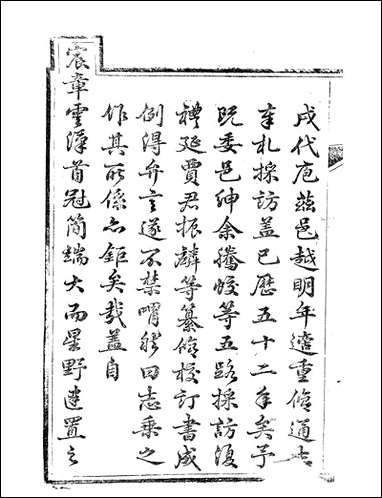 戍代庖茲邑越明年適重脩通志
奉札採訪蓋已歷五十二年矣予
既委邑紳余騰蛟等五路採訪復
禮延賈君振麟等纂脩校訂書成
例得弁言遂不禁喟然曰志乘之
作其所係亦鉅矣哉蓋自
宸章雲漢首冠簡端大而星野建置之